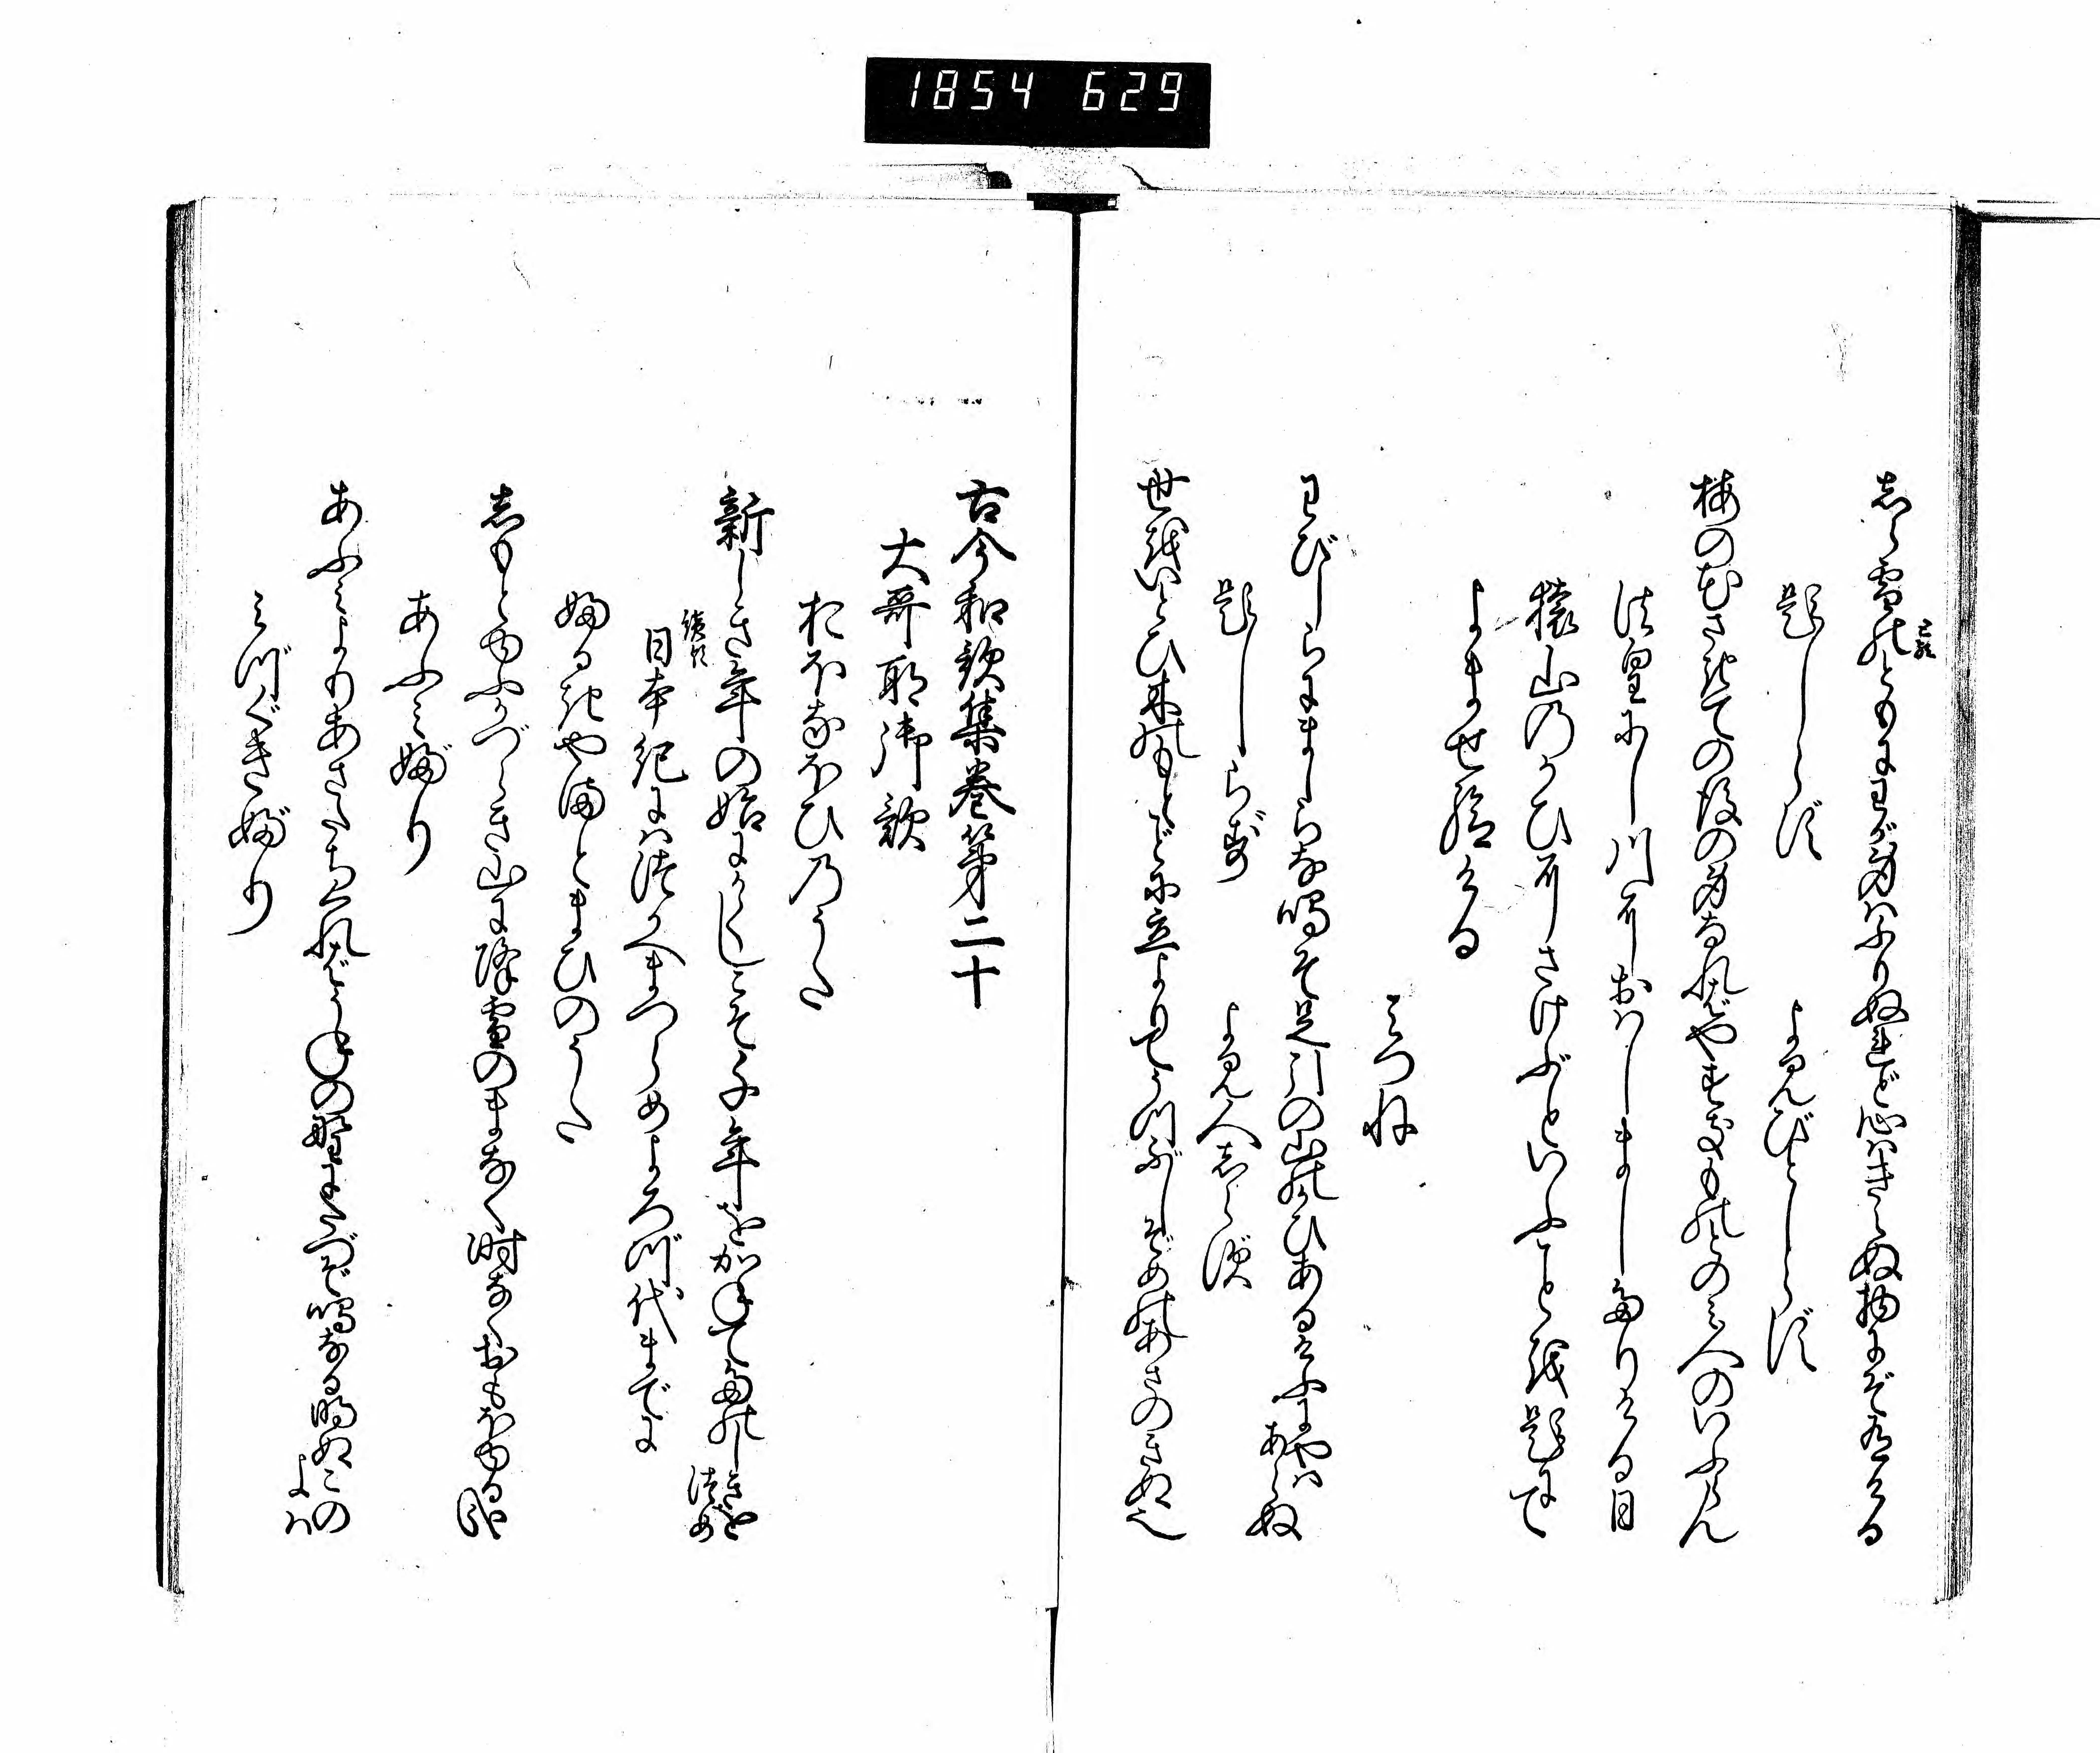 1854 629
志ら雪のともにわが身はふりぬれど心はきえぬ物にぞ有ける
題しらず　よみびとしらず
梅の花さきての後の身なればやすきものとのみ人のいふらん
法皇にし川におはしましたりける日
猿山のかひにさけぶといふことを題にて
よませ給ける
みつね
わびしらにましらな鳴そ足引の山のかひあるけふにやはあらぬ
題しらず　よみ人志らず
世をいとひ木のもとごとに立よりてうつぶしぞめのあさのきぬ也
古今和歌集巻第二十
大哥所御歌
おほなほひのうた
新しき年の始にかくしこそ千年をかねてたのしきをつめ
日本紀にはつかへまつらめよろづ代までに
ふるきやまとまひのうた
志もとゆふかづらき山に降雪のまなく時なくおもほゆる哉
あふみぶり
あふみよりあさたちくればうねの野にたづぞ鳴なる明ぬこのよは
みづぐきぶり